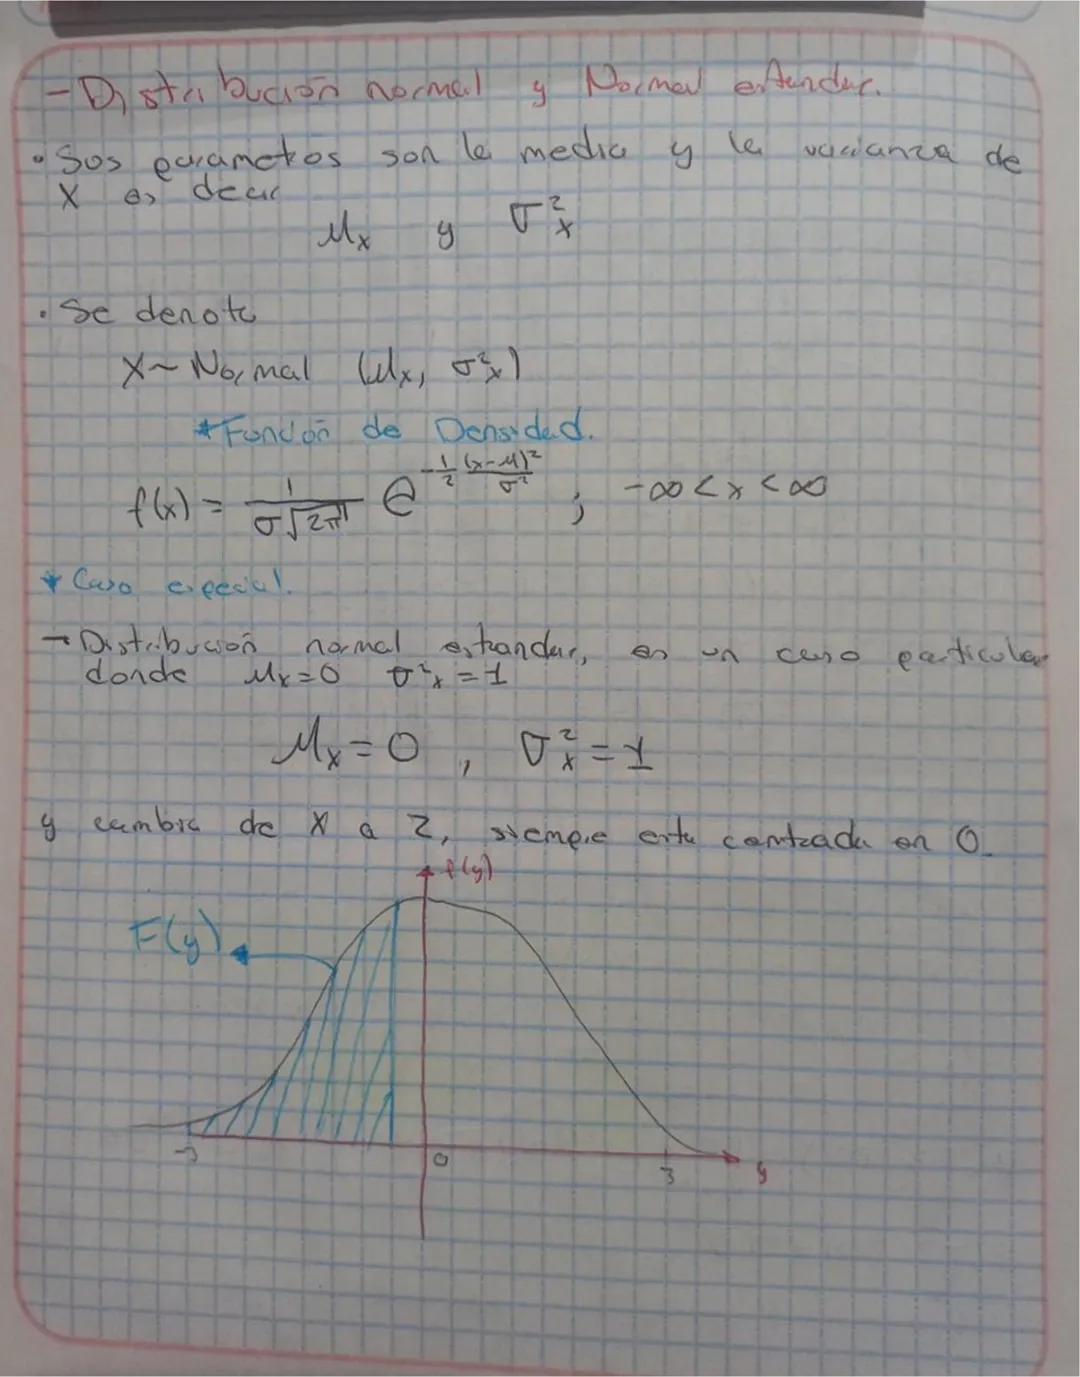 - Distribución normal y Normal estandar.
• Sos parametros son la media y la varianza de
X es decir
μx y σ²x
• Se denota
X ~ Normal (μx, σ²x)
* Función de Densidad.
f(x) = 1/(σ√2π) e^(-1/2 (x-μ)²/σ²) ; -∞ < x < ∞
* Caso especial.
→ Distribución normal estandar, es un caso particular
donde μx = 0 σ²x = 1
μx = 0 , σ²x = 1
y cambia de X a Z, siempre esta centrada en 0.
f(y)
F(y)
-3 0 3 y